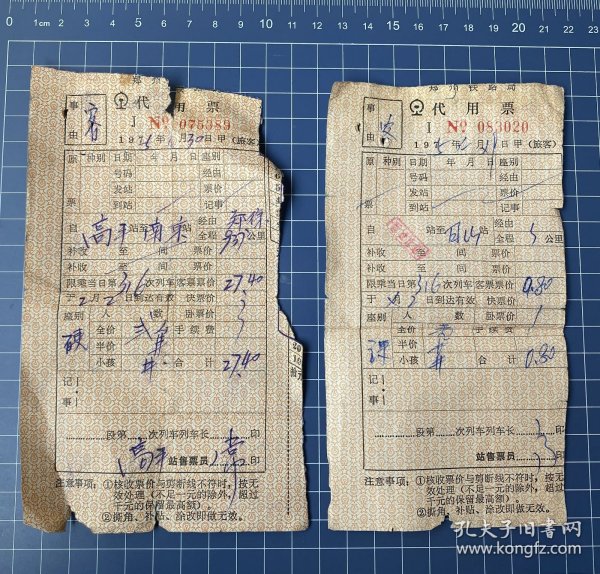 郑
事由
客
代用票
I No 075389
1975年1月30日甲(旅客)
原票
种别 日期 年 月 日 座别
号码 经由
发站 票价
到站 记事
自 高平 站至 南京 站 经由 郑 徐
全程 937 公里
补收 至 间 票价
补收 至 间 票价
限乘当日第 316 次列车 客票票价 27.40
于 2 月 2 日到达有效 快票价
座别 人 数 卧票价
硬
全价 手续费
半价
小孩 合计 27.40
记事
段第 次列车列车长 印
高平 站售票员 常 印
注意事项:①核收票价与剪断线不符时,按无
效处理(不足一元的除外,超过
千元的保留最高额)。
②撕角、补贴、涂改即做无效。
郑州铁路局
事由
代用票
I No 083020
1975年 月 日甲(旅客)
原票
种别 日期 年 月 日 座别
号码 经由
发站 票价
到站 记事
自 站至 站 经由
全程 5 公里
补收 至 间 票价
补收 至 间 票价
限乘当日第 316 次列车 客票票价 0.80
于 月 日到达有效 快票价
座别 人 数 卧票价
全价 手续费
半价
小孩 合计 0.80
记事
段第 次列车列车长 印
站售票员 印
注意事项:①核收票价与剪断线不符时,按无
效处理(不足一元的除外,超过
千元的保留最高额)。
②撕角、补贴、涂改即做无效。
0 1 2 3 4 5 6 7 8 9 10 11 12 13 14 15 16 17 18 19 20 21 22 23
孔夫子旧书网
www.kongfz.com